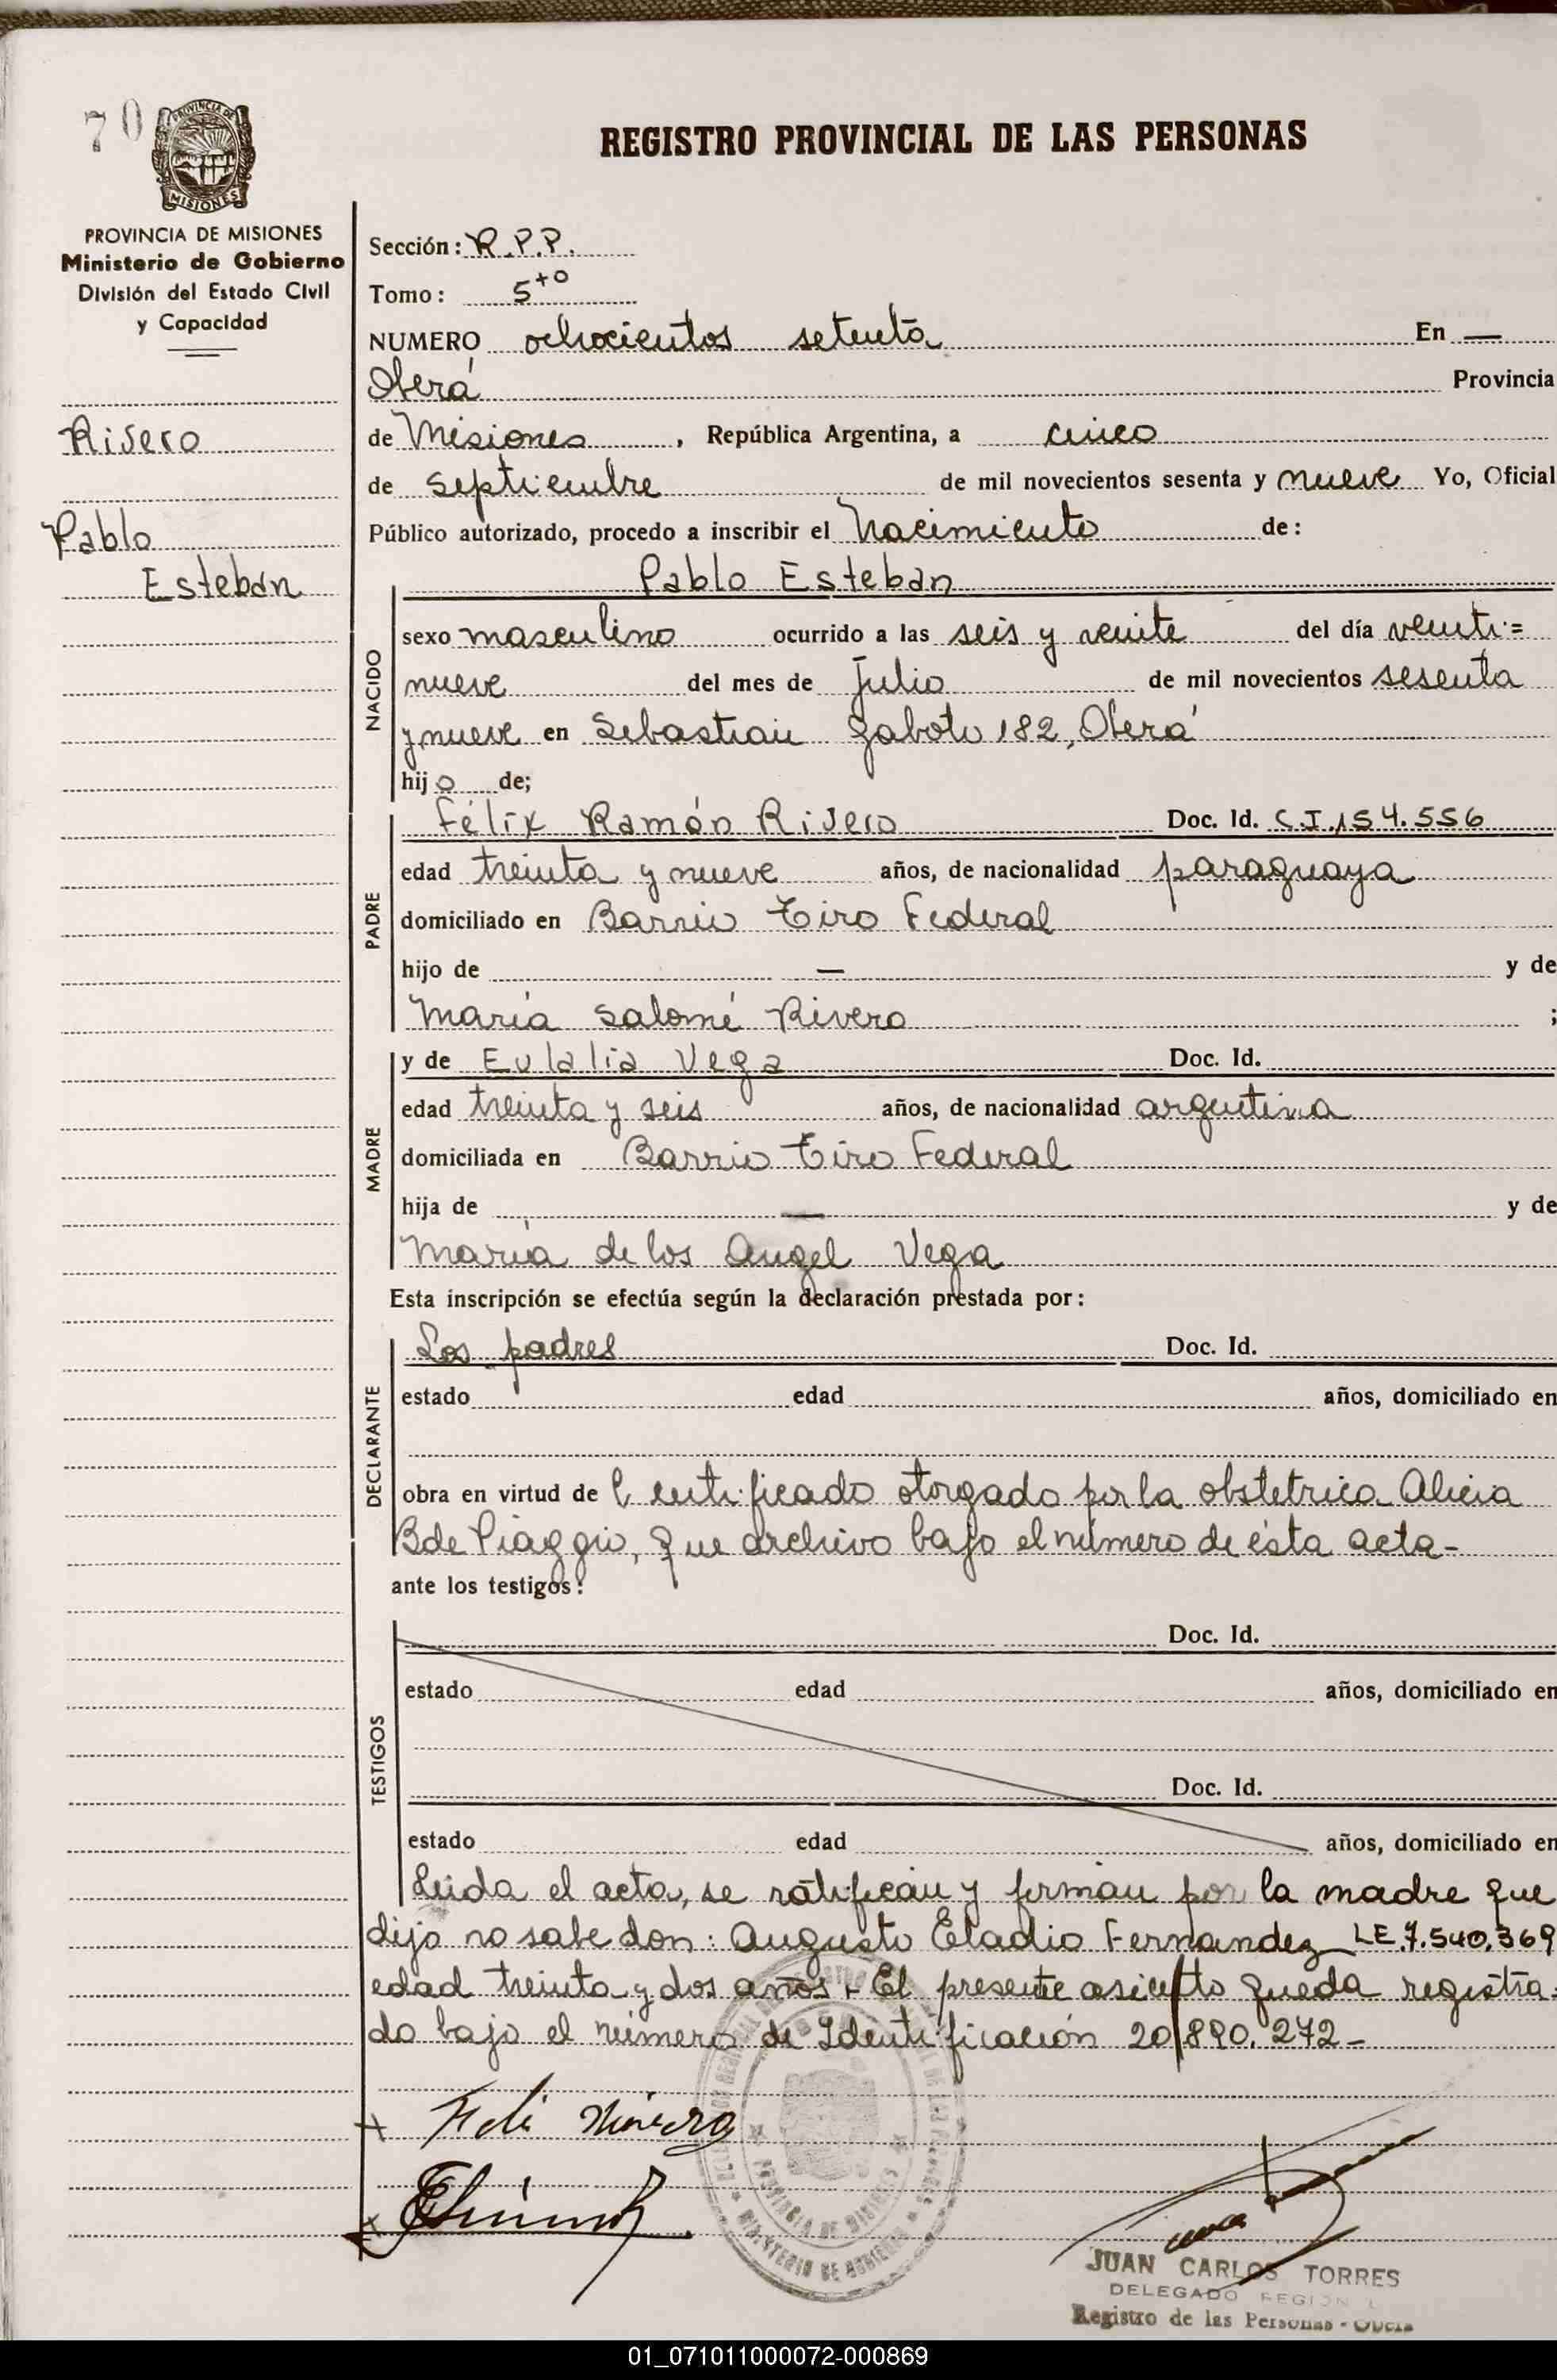 70
PROVINCIA DE
MISIONES
REGISTRO PROVINCIAL DE LAS PERSONAS
PROVINCIA DE MISIONES
Ministerio de Gobierno
División del Estado Civil
y Capacidad
Rivero
Pablo
Esteban
Sección: R.P.P.
Tomo: 5to
NUMERO ochocientos setenta En —
Oberá Provincia
de Misiones, República Argentina, a cinco
de septiembre de mil novecientos sesenta y nueve Yo, Oficial
Público autorizado, procedo a inscribir el Nacimiento de:
Pablo Esteban
NACIDO
sexo masculino ocurrido a las seis y veinte del día veinti=
nueve del mes de Julio de mil novecientos sesenta
y nueve en Sebastian Gaboto 182, Oberá
hijo de;
PADRE
Félix Ramón Rivero Doc. Id. C.I.154.556
edad treinta y nueve años, de nacionalidad paraguaya
domiciliado en Barrio Tiro Federal
hijo de — y de
María Salomé Rivero ;
MADRE
y de Eulalia Vega Doc. Id.
edad treinta y seis años, de nacionalidad argentina
domiciliada en Barrio Tiro Federal
hija de — y de
María de los Angel Vega
Esta inscripción se efectúa según la declaración prestada por:
DECLARANTE
Los padres Doc. Id.
estado edad años, domiciliado en
obra en virtud de Certificado otorgado por la obstetrica Alicia
B de Piaggio, que archivo bajo el número de ésta acta-
ante los testigos:
TESTIGOS
Doc. Id.
estado edad años, domiciliado en
Doc. Id.
estado edad años, domiciliado en
Leida el acta, se ratifican y firman por la madre que
dijo no sabe don: Augusto Eladio Fernandez LE.7.540.369
edad treinta y dos años. El presente asiento queda registra-
do bajo el número de Identificación 20/890.272-
PROVINCIA DE MISIONES
MINISTERIO DE GOBIERNO
JUAN CARLOS TORRES
DELEGADO REGIONAL
Registro de las Personas - Oberá
01_071011000072-000869